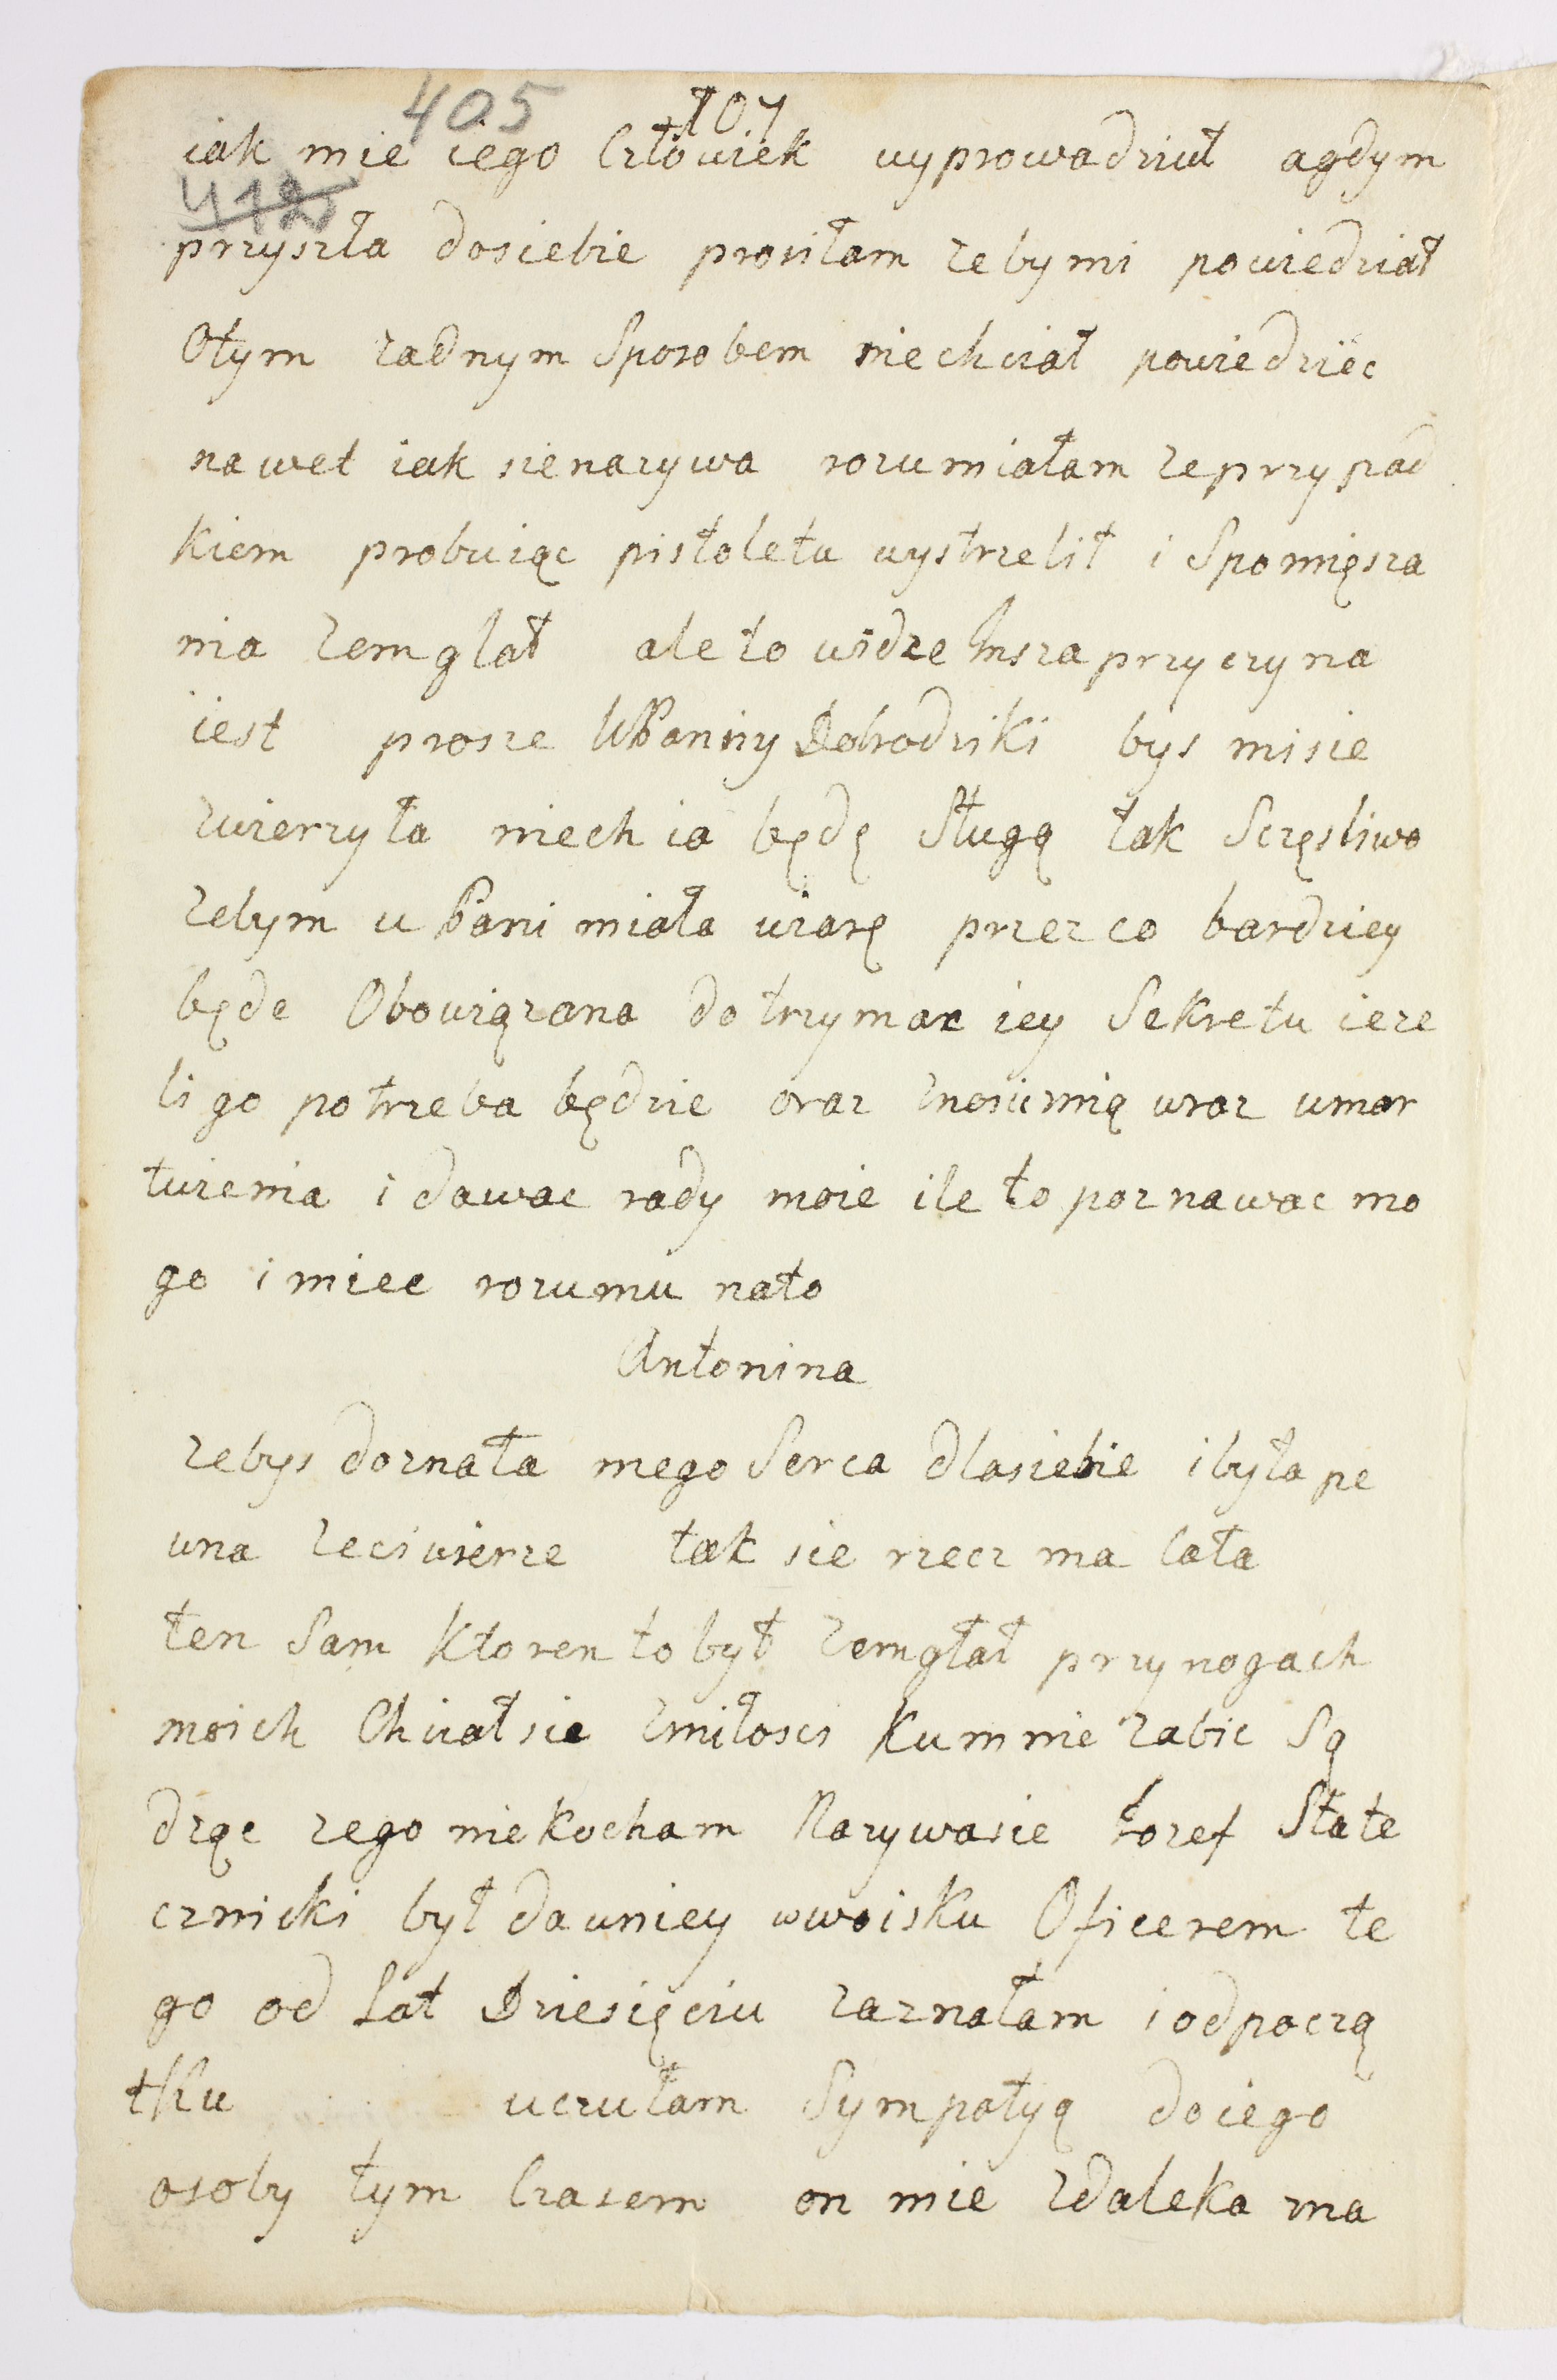 405 107
iak mie iego Człowiek wyprowadził agdym
412
przyszła dosiebie prosiłam zebymi powiedział
Otym zadnym Sposobem niechciał powiedziec
nawet iak sienazywa rozumiałam zeprzypad
kiem probuiąc pistoletu wystrzelił i Spomięsza
nia zemglał ale to widze Insza przyczyna
iest prosze WPaniny Dobrodziki bys misie
zwierzyła niech ia będę Sługą tak Sczęsliwo
zebym u Pani miała wiarę przez co bardziey
będe Obowiązana dotrzymac iey Sekretu ieze
li go potrzeba będzie oraz znosic mię wraz umar
twienia i dawac rady moie ile to poznawac mo
go i miec rozumu nato
Antonina
zebys doznała mego Serca dlasiebie i była pe
wna zeciwierze tak sie rzecz ma cała
ten Sam Ktoren to był zemgłał przynogach
moich Chciał sie zmiłosci Kumnie zabic Są
dząc zego niekocham Nazywasie Iozef State
cznicki był dawniey wwoisku Oficerem te
go od Lat Dziesięciu zaznałam i odpoczą
tku uczułam Sympatyą doiego
osoby tym Czasem on mie zdaleka zna